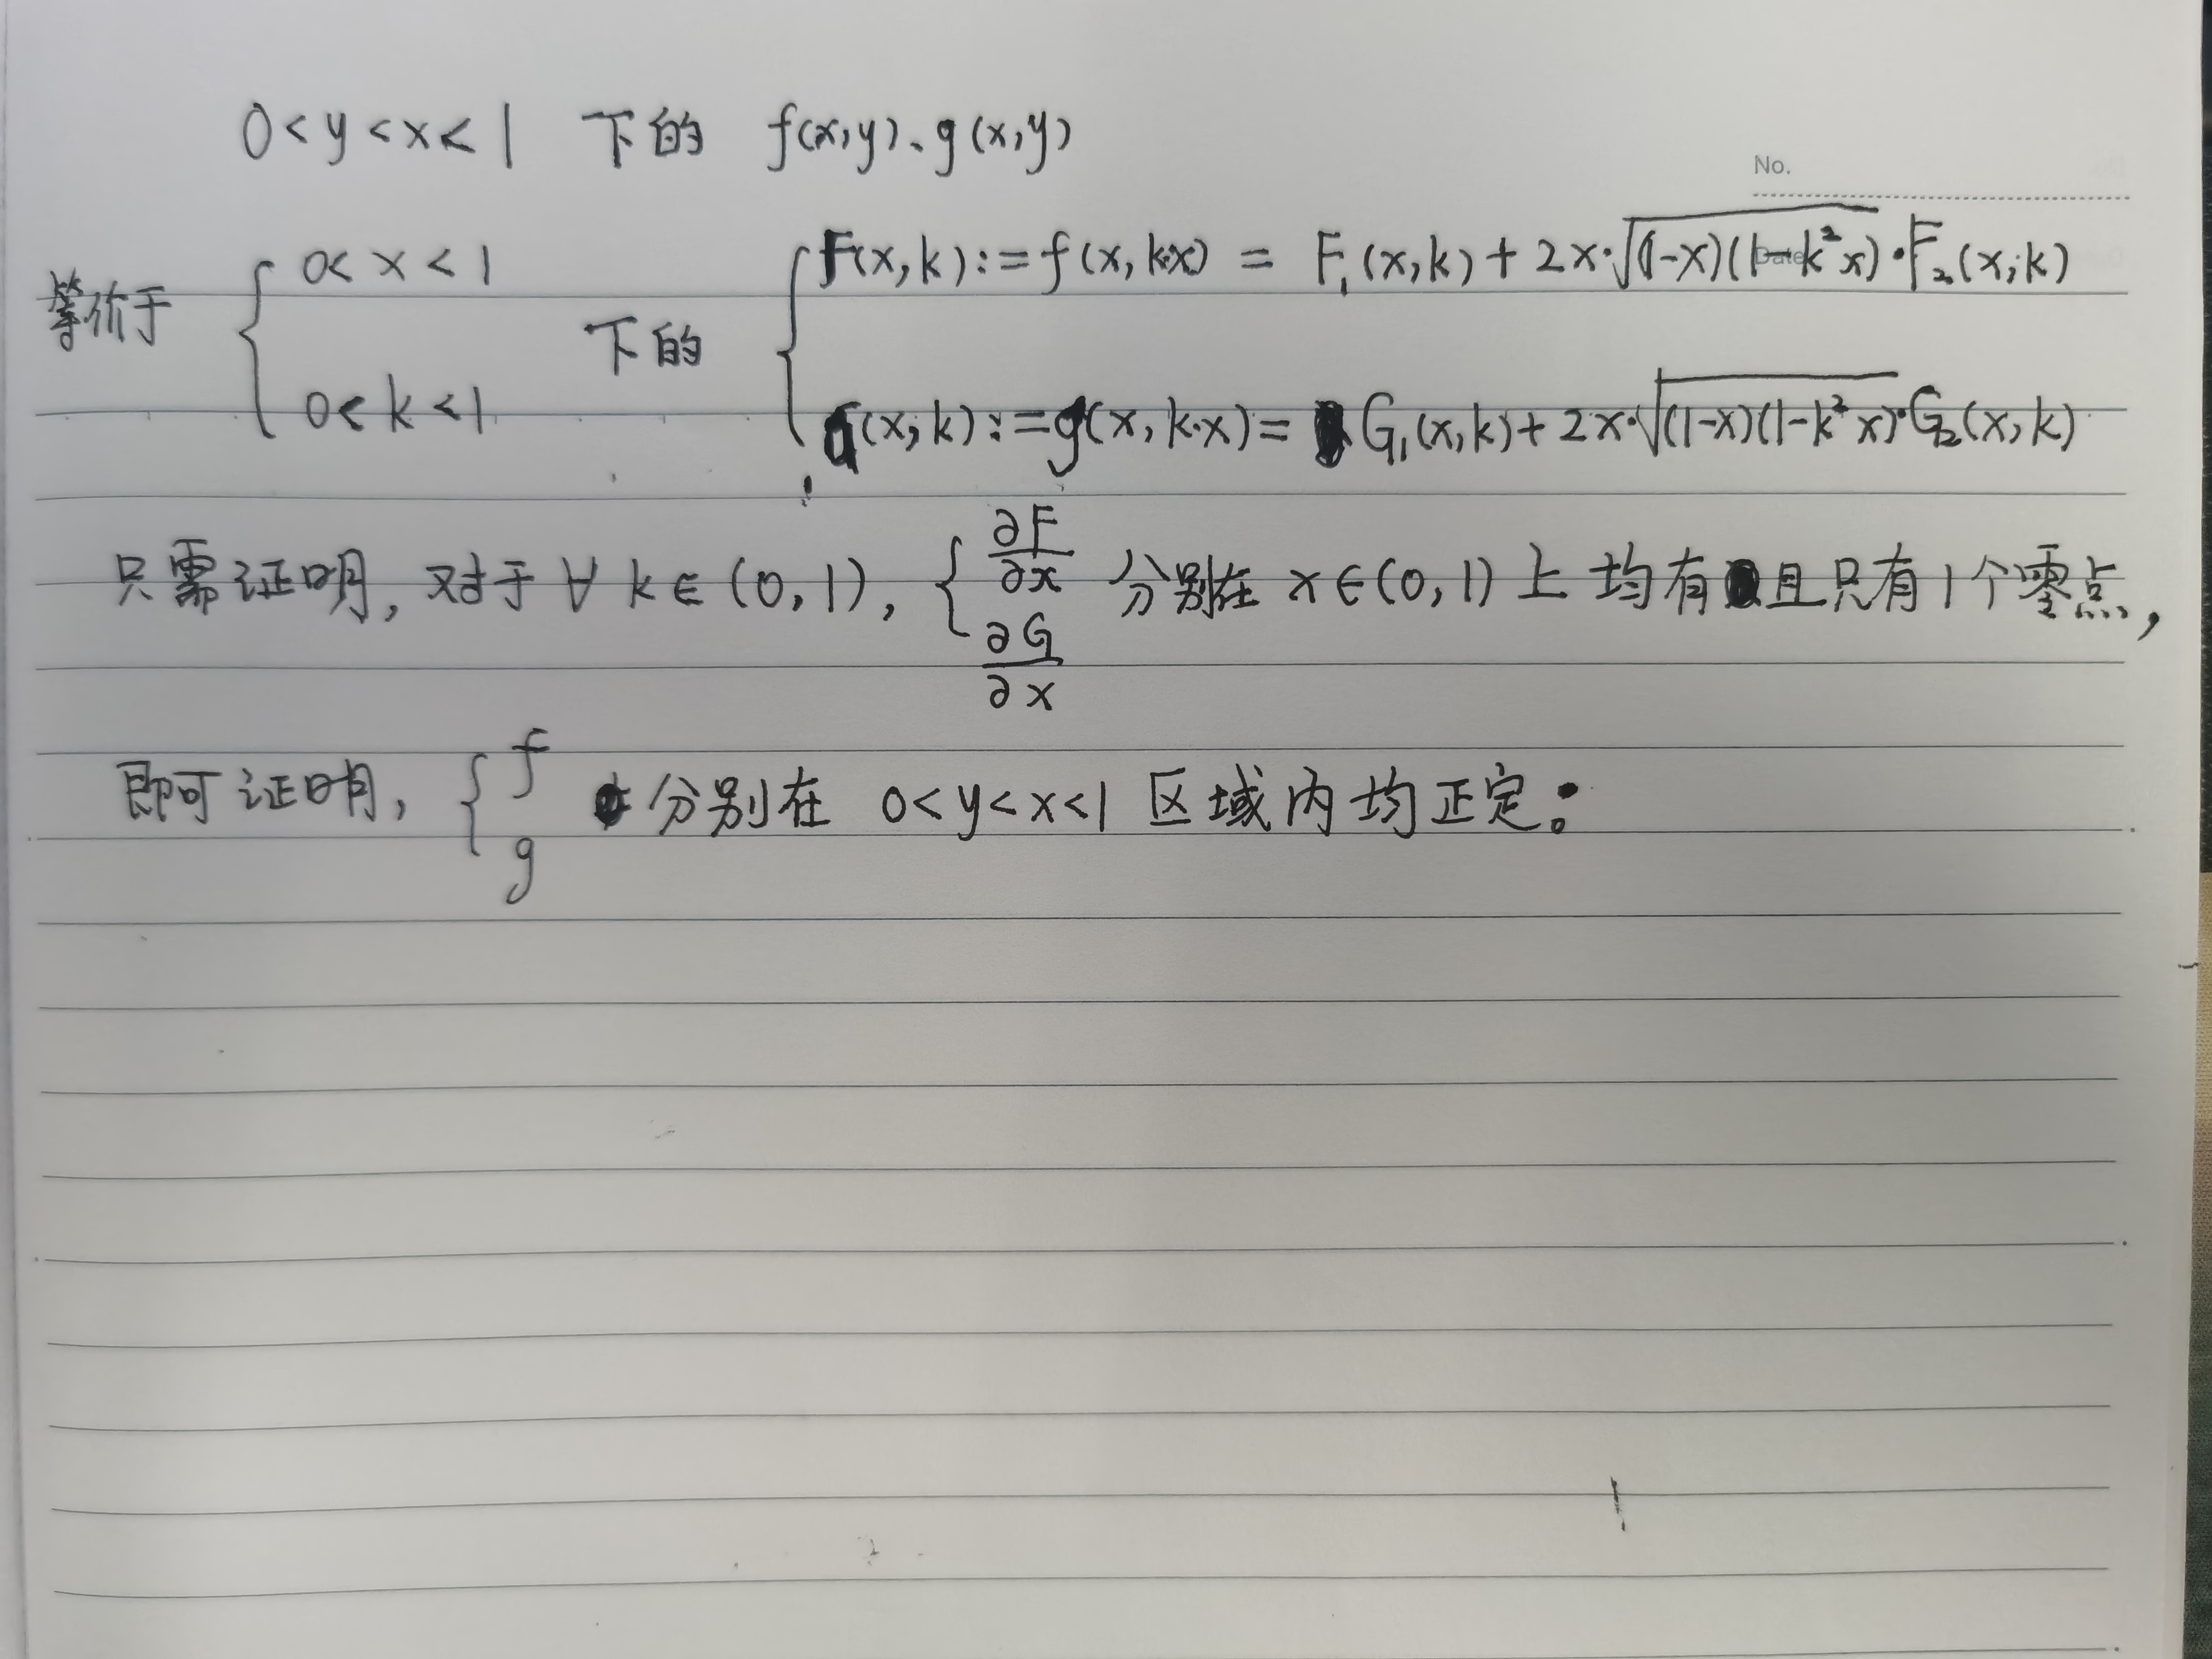 0<y<x<1 下的 f(x,y)、g(x,y)
No.
Date
等价于 { 0<x<1 下的 { F(x,k):=f(x,k·x) = F₁(x,k)+2x·√((1-x)(1-k²x))·F₂(x,k)
0<k<1 G(x,k):=g(x,k·x)= G₁(x,k)+2x·√((1-x)(1-k²x))·G₂(x,k)
只需证明,对于∀k∈(0,1), { ∂F/∂x ∂G/∂x 分别在 x∈(0,1)上均有且只有1个零点,
即可证明, { f g 分别在 0<y<x<1 区域内均正定。